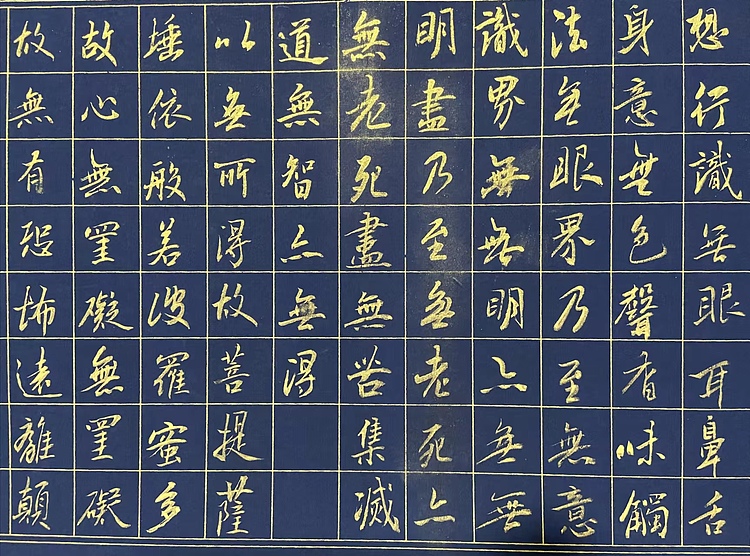 想行識無眼耳鼻舌
身意無色聲香味觸
法無眼界乃至無意
識界無無明亦無無
明盡乃至無老死亦
無老死盡無苦集滅
道無智亦無得
以無所得故菩提薩
埵依般若波羅蜜多
故心無罣礙無罣礙
故無有恐怖遠離顛